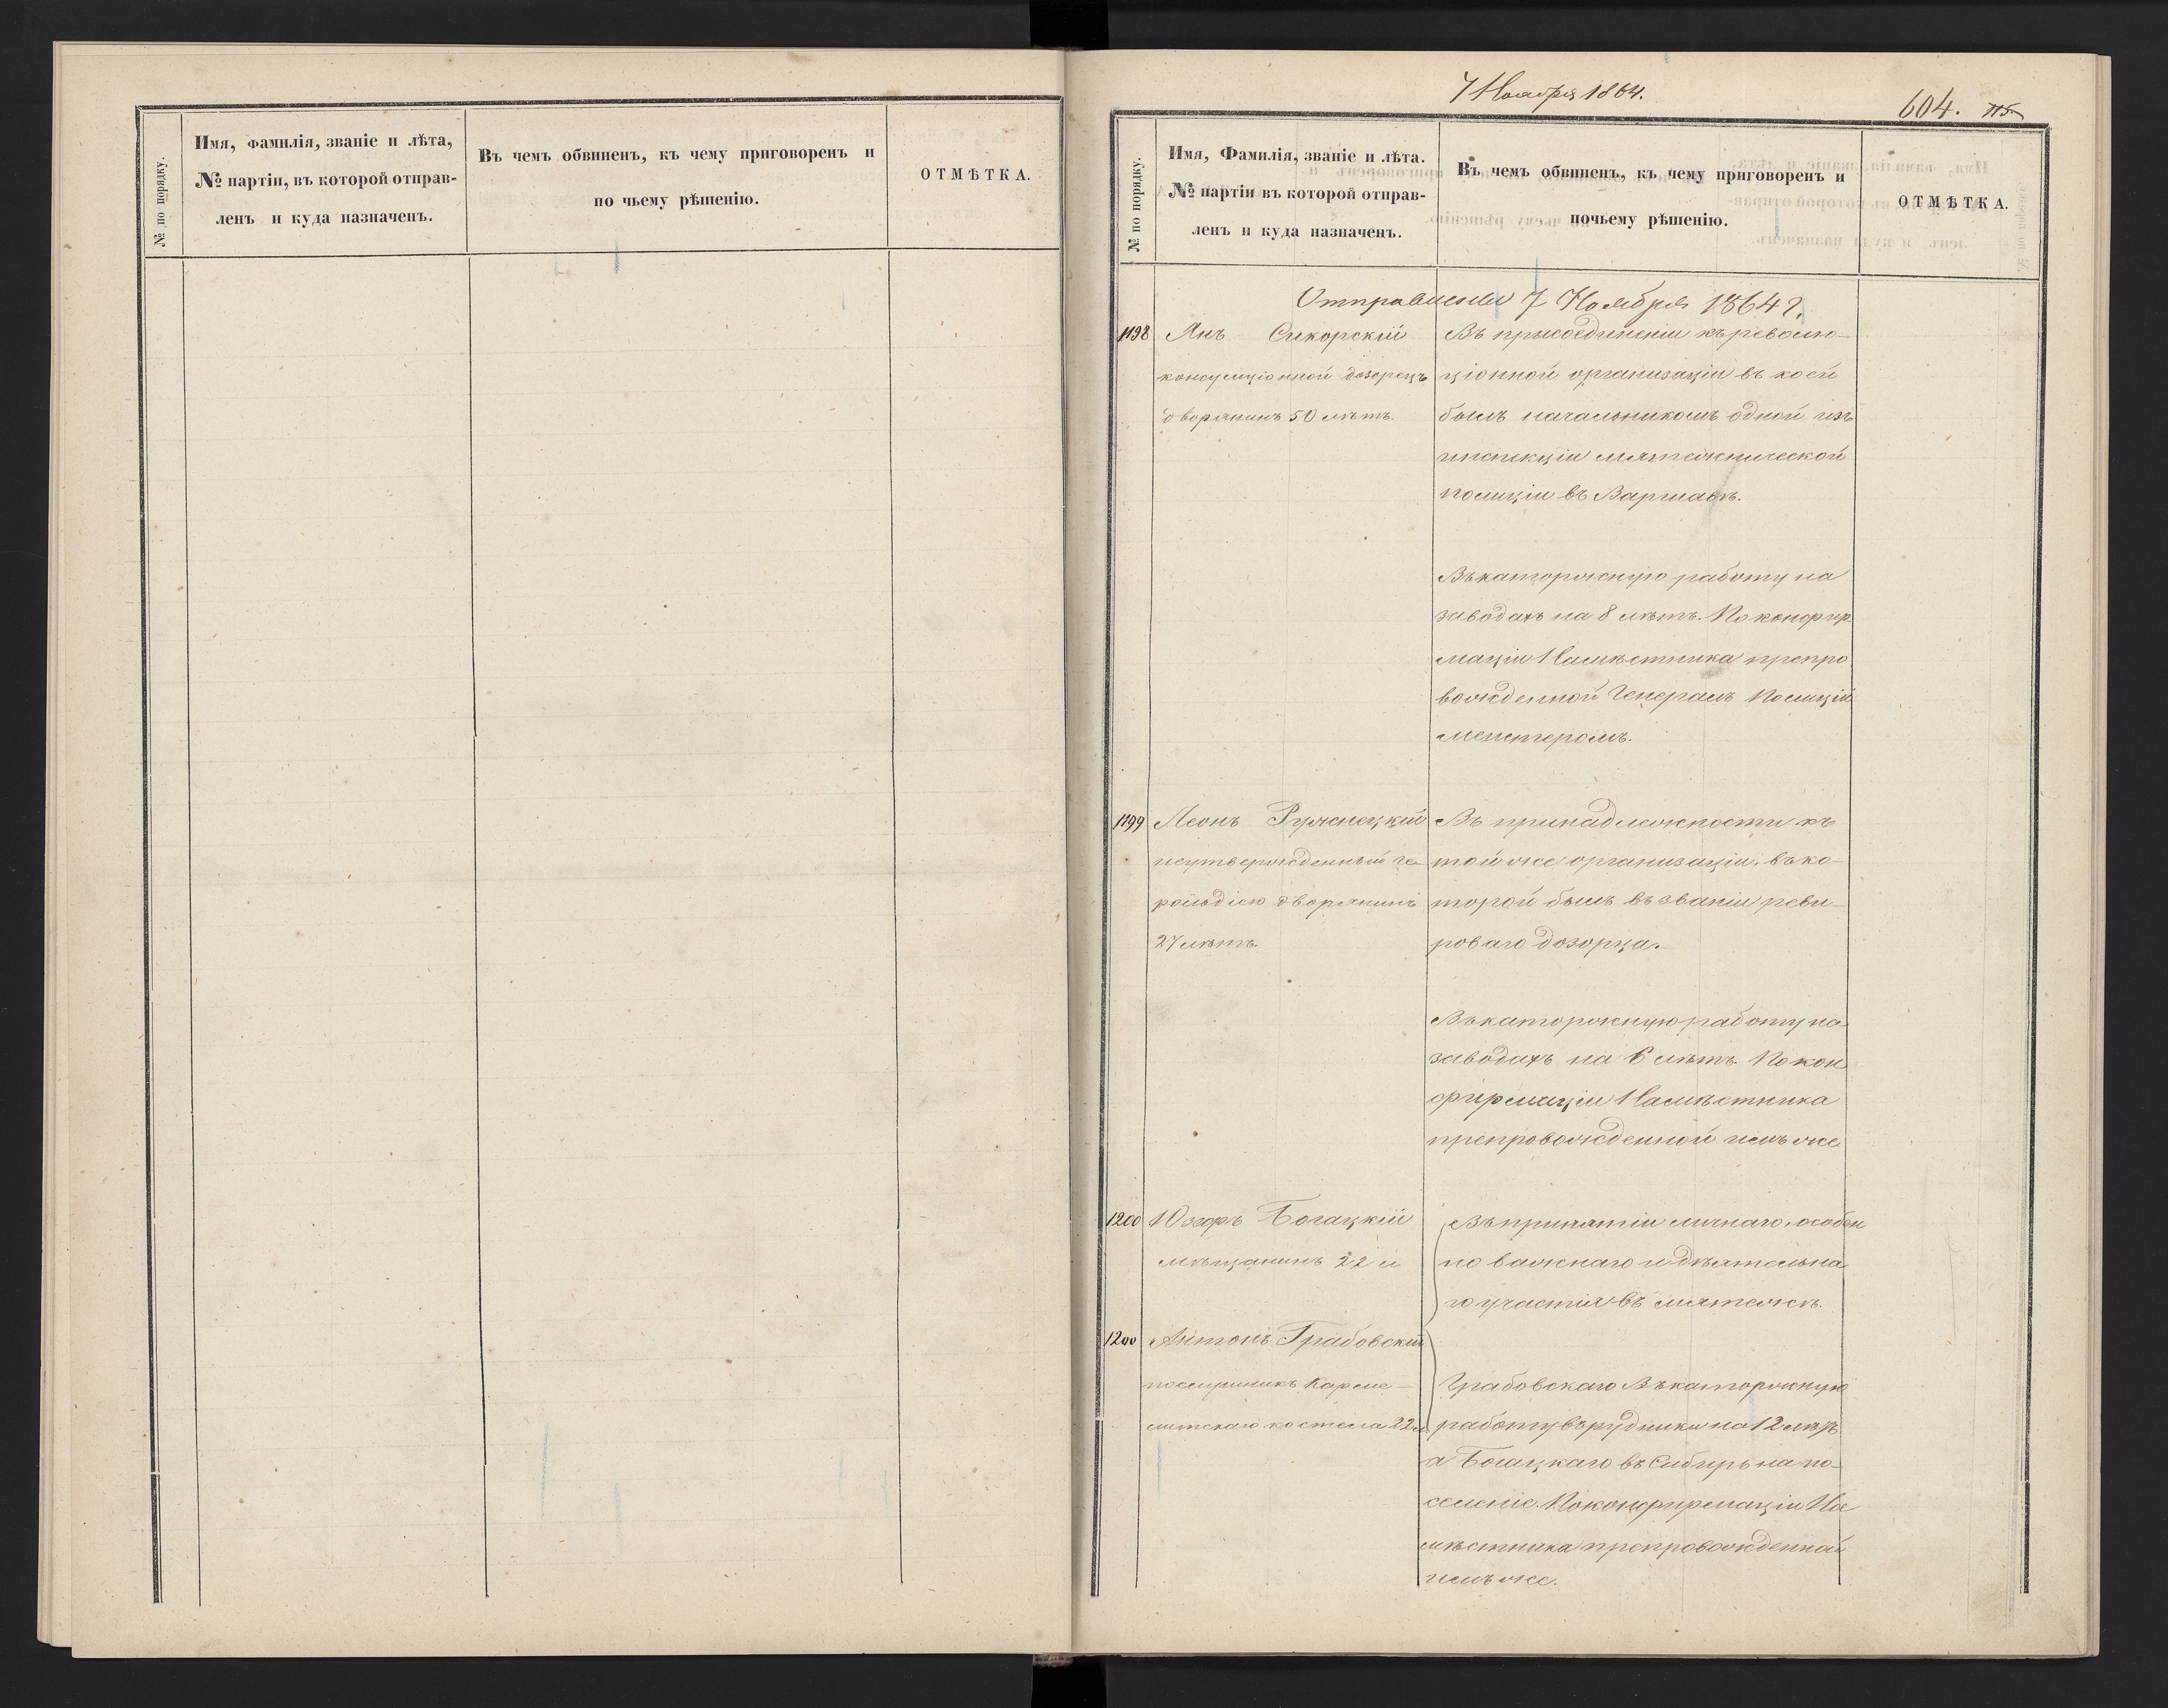 № по порядку.
Имя, фамилія, званіе и лѣта,
№ партіи, въ которой отправ-
ленъ и куда назначенъ.
Въ чемъ обвиненъ, къ чему приговоренъ и
по чьему рѣшенію.
ОТМѢТКА.
7 Ноября 1864.
604. 115
№ по порядку.
Имя, Фамилія, званіе и лѣта.
№ партіи въ которой отправ-
ленъ и куда назначенъ.
Въ чемъ обвиненъ, къ чему приговоренъ и
почьему рѣшенію.
ОТМѢТКА.
Отправлены 7 Ноября 1864 г.
1198 Янъ Сикорскій
консумціонной дозорецъ
дворянинъ 50 лѣтъ.
Въ присоединеніи къ револю-
ціонной организаціи въ коей
былъ начальникомъ одной изъ
инспекціи мятежнической
полиціи въ Варшавѣ.
Въ каторжную работу на
заводахъ на 8 лѣтъ. По конфир
маціи Намѣстника препро
вожденной Генералъ Полиціи
мейстеромъ.
1199 Леонъ Ружнецкій
неутвержденный Ге-
рольдіею дворянинъ
27 лѣтъ.
Въ принадлежности къ
той же организаціи, въ ко-
торой былъ въ званіи реви-
роваго дозорца.
Въ каторжную работу на
заводахъ на 6 лѣтъ. По кон
фирмаціи Намѣстника
препровожденной имъ же
1200 Юзефъ Богацкій
мѣщанинъ 22 л
Въ принятіи личнаго, особен
но важнаго и дѣятельна
го участія въ мятежѣ.
1200 Антонъ Грабовскій
послушникъ Карме-
литскаго костела 22 л
Грабовскаго Въ каторжную
работу въ рудники на 12 лѣтъ
а Богацкаго въ Сибирь на по-
селеніе. По конфирмаціи На
мѣстника препровожденной
имъ же.